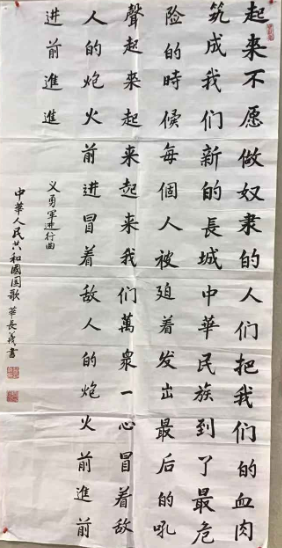 起来不愿做奴隶的人们把我们的血肉
筑成我们新的長城中華民族到了最危
险的時候每個人被迫着发出最后的吼
聲起来起来起来我们萬衆一心冒着敌
人的炮火前进冒着敌人的炮火前進前
进前進進
义勇军进行曲
中華人民共和國国歌 華長義書